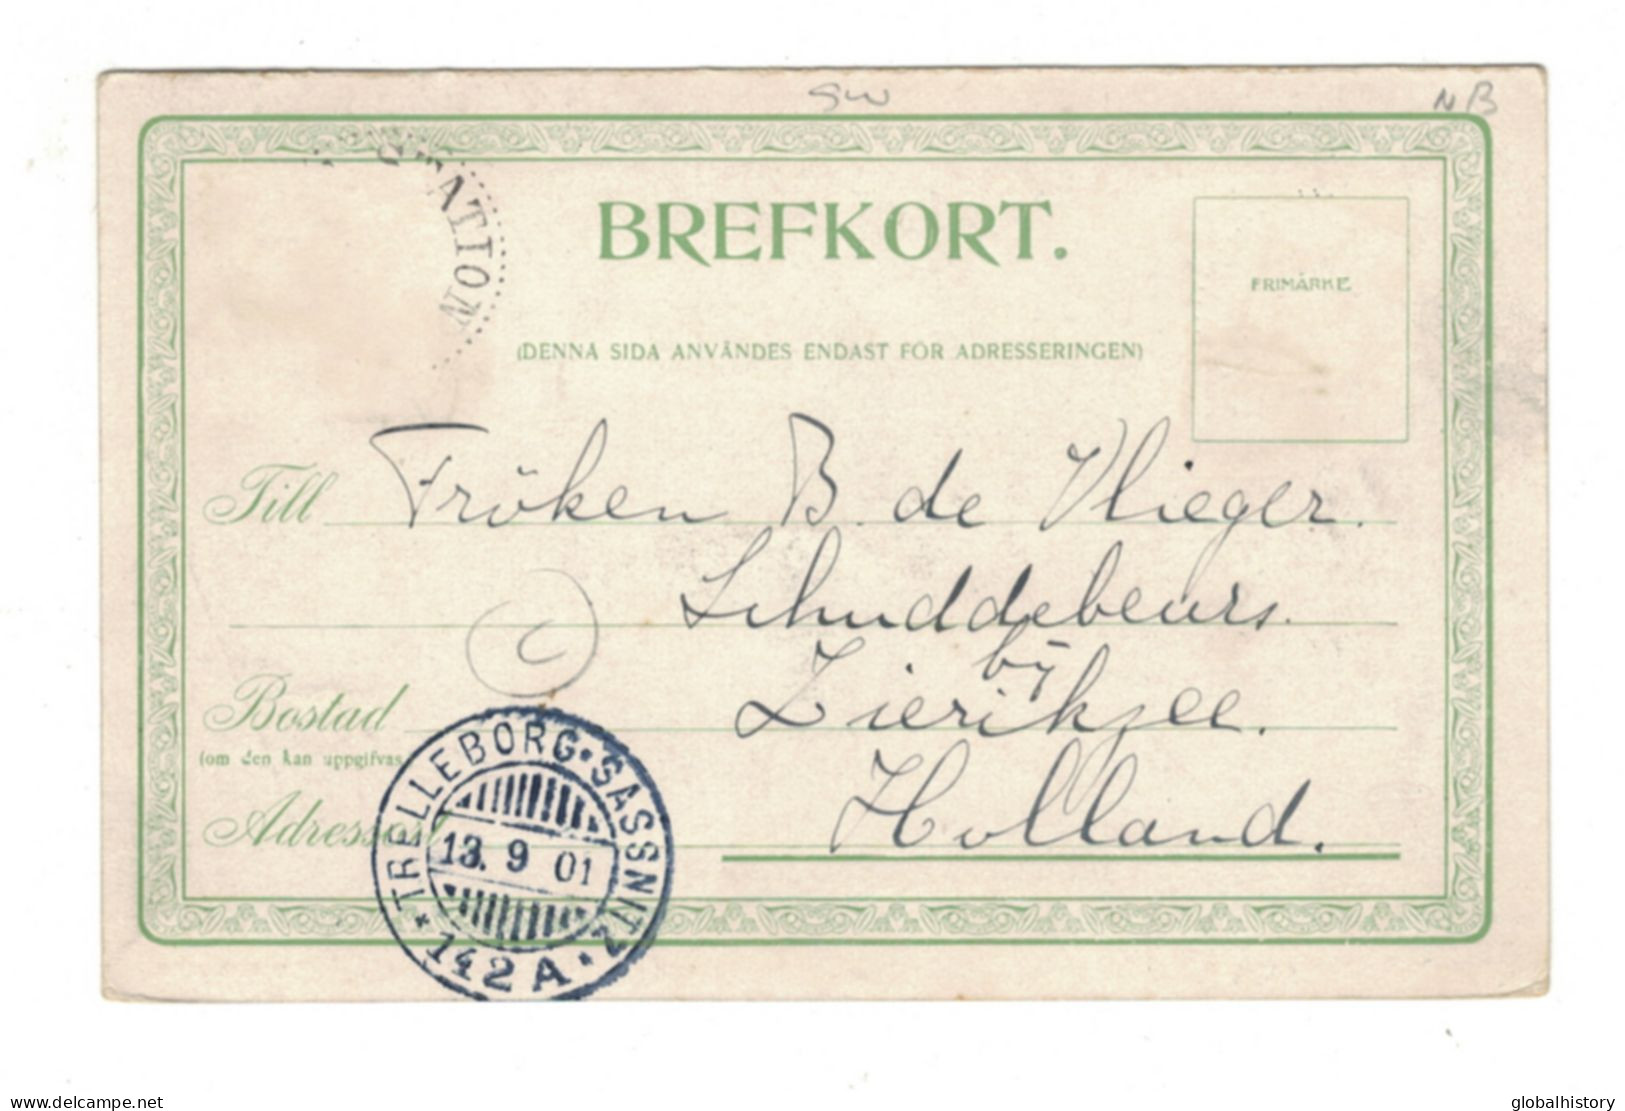 SW
NB
STATION
BREFKORT.
FRIMÄRKE
(DENNA SIDA ANVÄNDES ENDAST FÖR ADRESSERINGEN)
Till Fröken B. de Vlieger.
Schuddebeurs.
bÿ
Bostad Zierikzee.
(om den kan uppgifvas
C
Adressort Holland.
TRELLEBORG·SASSNITZ
13. 9 01
* 142 A *
www.delcampe.net
globalhistory